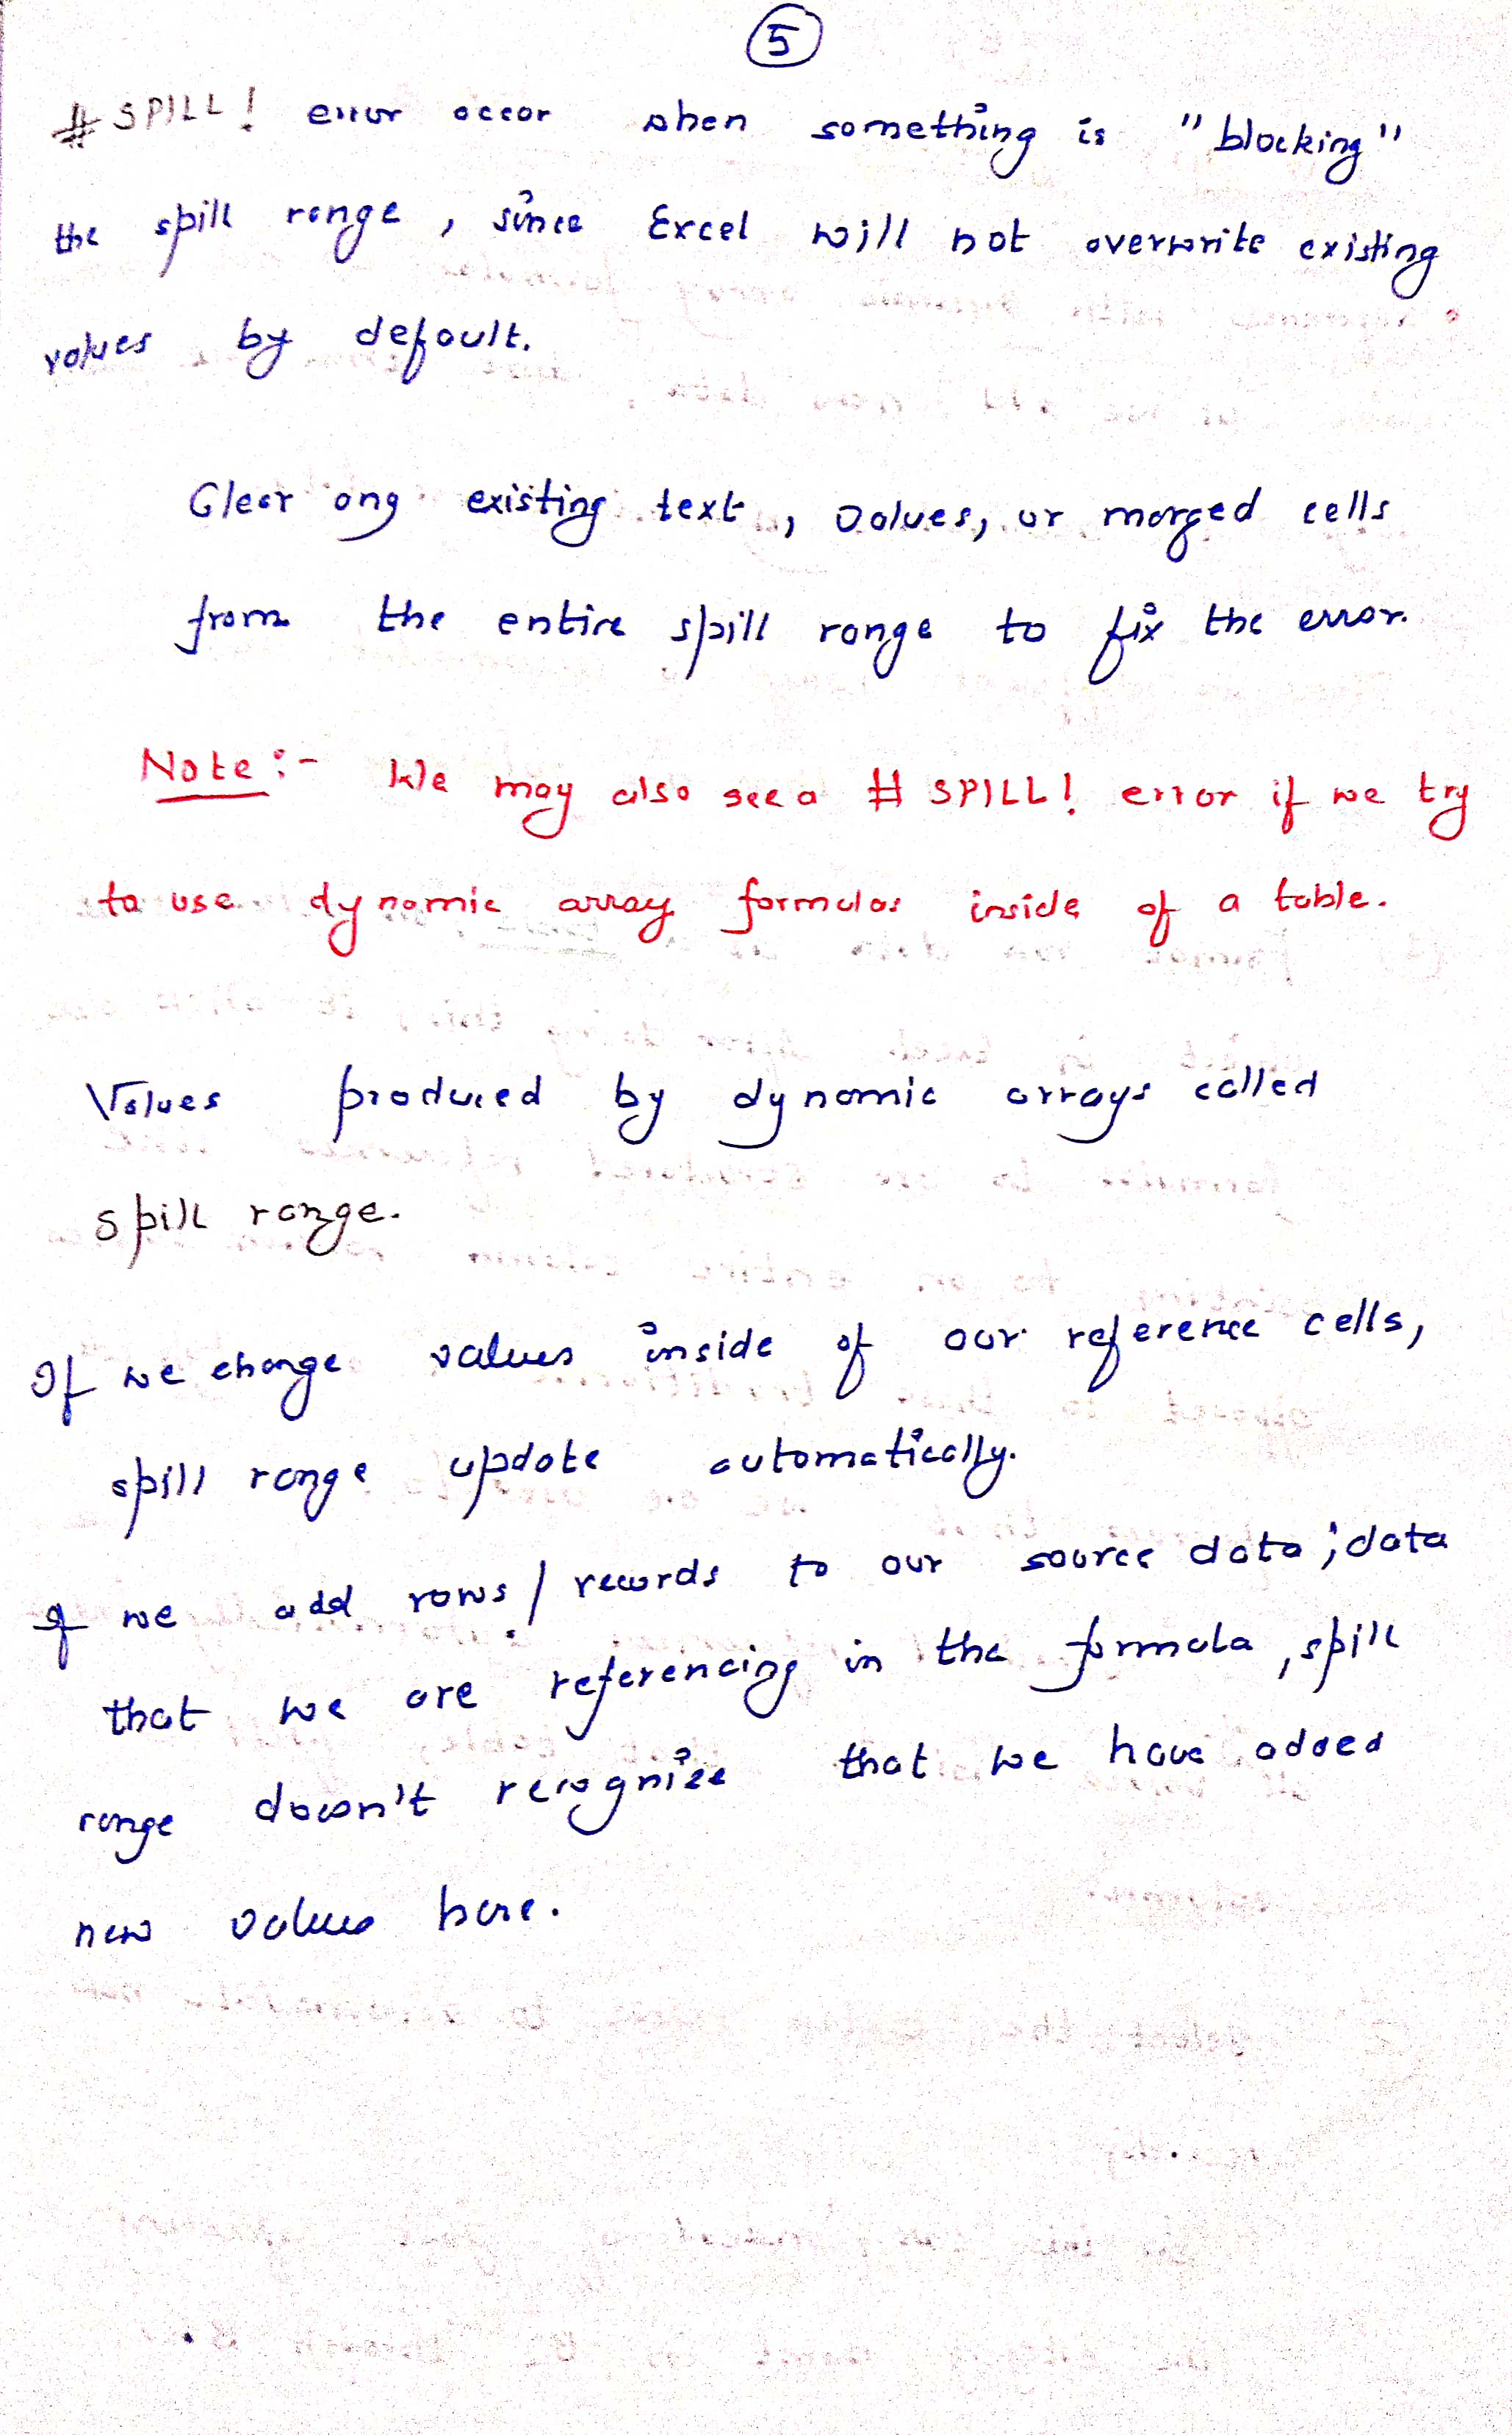 5
#SPILL! error occor when something is "blocking"
the spill range, since Excel will not overwrite existing
values by default.
Clear any existing text, values, or merged cells
from the entire spill range to fix the error.
Note:- We may also see a #SPILL! error if we try
to use dynamic array formulas inside of a table.
Values produced by dynamic arrays called
spill range.
If we change values inside of our reference cells,
spill range update automatically.
If we add rows/records to our source data; data
that we are referencing in the formula, spill
range doesn't recognize that we have added
new values here.